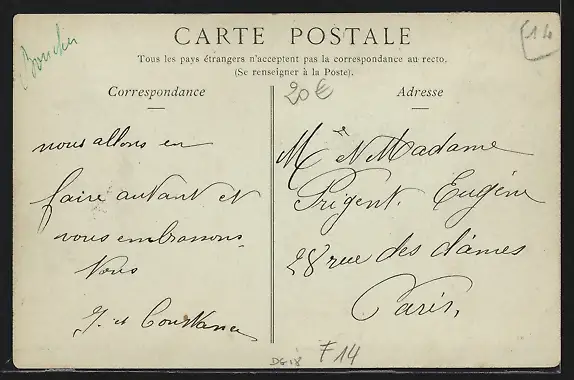 Boucher
14
CARTE POSTALE
Tous les pays étrangers n'acceptent pas la correspondance au recto.
(Se renseigner à la Poste).
Correspondance
20€
Adresse
nous allons en
faire autant et
vous embrassons
Vous
J. et Constance
Mr et Madame
Prigent. Eugène
28 rue des dâmes
Paris.
F14